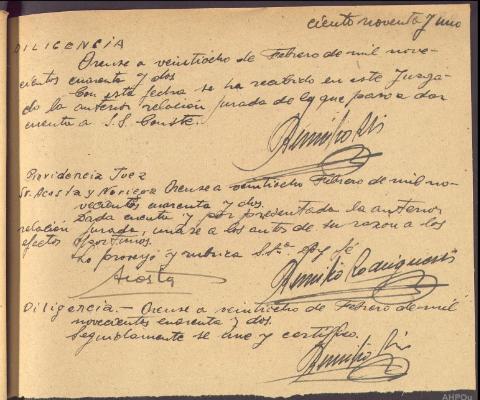 ciento noventa y uno
DILIGENCIA
Orense a veintiocho de Febrero de mil nove-
cientos cuarenta y dos
Con esta fecha se ha recibido en este Juzga-
do la anterior relación jurada de lo que paso a dar
cuenta a S.S. Conste.
Providencia Juez
Sr. Acosta y Noriega Orense a veintiocho Febrero de mil no-
vecientos cuarenta y dos.
Dada cuenta y por presentada la anterior
relación jurada, unase a los autos de su razon a los
efectos oportunos.
Lo proveyó y rubrica S.Sª doy fé
Acosta
Remigio Rodriguez
Diligencia.- Orense a veintiocho de Febrero de mil
novecientos cuarenta y dos.
Seguidamente se une y certifico.
AHPOu